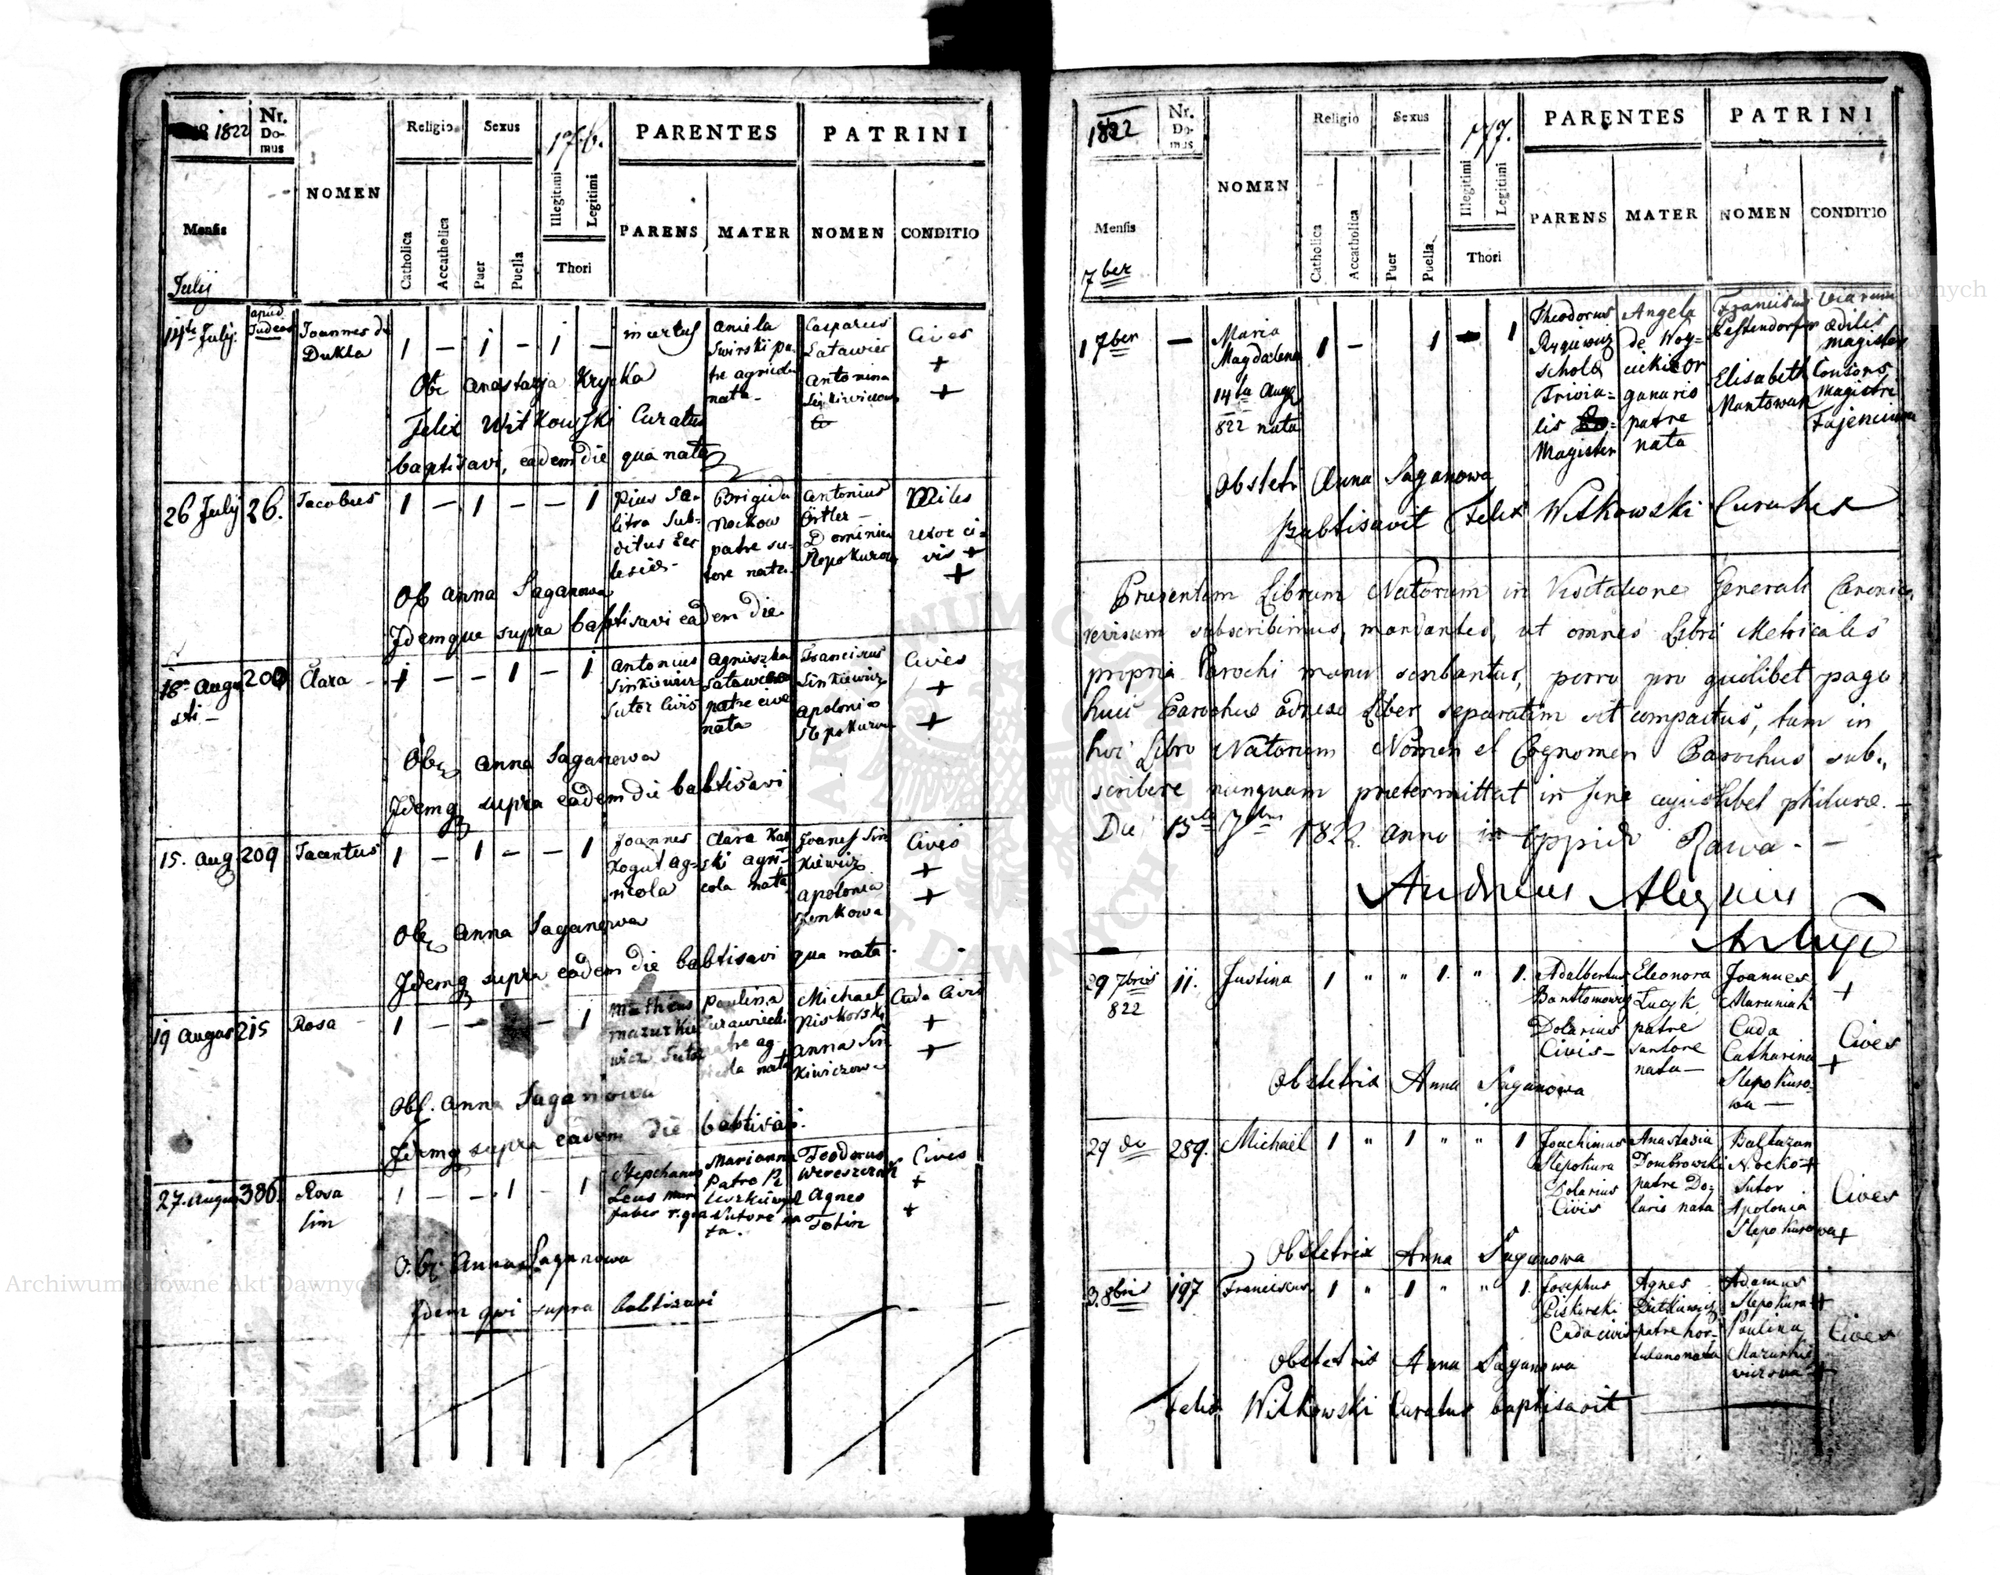 1822
Nr. Domus
NOMEN
Religio
Sexus
176.
PARENTES
PATRINI
Mensis
Catholica
Accatholica
Puer
Puella
Illegitimi
Legitimi
Thori
PARENS
MATER
NOMEN
CONDITIO
July
14ta July.
apud Judeos
Joannes de
Dukla
1 — 1 — 1 —
incertus
Aniela
Swirski pa-
tre agricola
nata —
Casparus
Satawier
Antonina
Cives
+
+
Obe Anastazja Krycka
Felix Witkowski Curatus
baptisavi, eadem die qua nata
26 July
26.
Jacobus
1 — 1 — — 1
Pius Sa-
litra Sub-
ditus Ec-
lesiæ —
Brigida
Nockow
patre su-
tore nata
Antonius
Örtler —
Dominica
Slepokurow
Miles
uxor ci-
vis +
+
Ob Anna Saganowa
Jdemque supra baptisavi eadem die
18a Augu
sti —
200
Clara —
1 — — 1 — 1
Antonius
Sinkiewicz
Sutor Civis
Agnieszka
patre cive
nata
Franciscus
Sinkiewicz
Apolonia
Slepokurow
Cives
+
+
Obe Anna Saganowa
Jdemq supra eadem die babtisavi
15. Aug
209
Jacentus
1 — 1 — — 1
Joannes
Kogut ag-
ricola
Clara Kal
ski agri-
cola nata
Joanes Sin
kiewicz
Apolonia
Senkowa
Cives
+
+
Obe Anna Saganowa
Jdemq supra eadem die babtisavi qua nata.
19 Augus
215
Rosa —
1 — — 1 — 1
Matheus
Mazurkie
wicz Sutor
Paulina
Zurawiecki
patre ag-
ricola nata
Michael
Piskorski
Anna Sin
kiewiczow
Cuda Civis
+
+
Obe. Anna Saganowa
Jdemq supra eadem die babtisavi.
27. Augus
386.
Rosa
lim
1 — — 1 — 1
Stephanus
Marianna
Patre
Sutore na
ta.
Teodorus
Wereszczak
Agnes
Totin
Cives
+
+
Obe. Anna Saganowa
Jdem qwi supra babtisavi
1822
Nr. Domus
NOMEN
Religio
Sexus
177.
PARENTES
PATRINI
Mensis
Catholica
Accatholica
Puer
Puella
Illegitimi
Legitimi
Thori
PARENS
MATER
NOMEN
CONDITIO
7ber
1 7ber
—
Maria
Magdalena
14ta Aug
822 nata
1 — 1 — 1
Theodorus
Ryniewicz
Schola
Trivia=
lis
Magister
Angela
de Woy=
cicki or
ganario
patre
nata
Franciscus
Pastendorfer
Elisabeth
Mantowan
viarum
ædilis
magister
Consors
Magistri
Obstetr Anna Saganowa
Babtisavit Felix Witkowski Curatus
Præsentem Librum Natorum in Visitatione Generali Canonica
revisum subscribimus, mandantes, ut omnes Libri Metricales
propria Parochi manu scribantur, porro pro quolibet pago
huic Parochiæ adnexo Liber separatim sit compactus, tum in
hoc Libro Natorum Nomen et Cognomen Parochus sub-
scribere nunquam prætermittat in fine cujuslibet philuræ. —
Die 15ta 7bris 1822 anno in Oppido Rawa. —
29 7bris
822
11.
Justina
1 " " 1. " 1.
Adalbertus
Bartlomowicz
Dolarius
Civis —
Eleonora
Lucyk
patre
sartore
nata —
Joannes
Maruniak
Cuda
Catharina
Slepokuro-
wa —
+
Cives
+
Obstetrix Anna Saganowa
29 do
289.
Michaël
1 " 1 " " 1
Joachimus
Slepokura
Dolarius
Civis
Anastasia
Dombrowski
patre Do-
lario nata
Baltazar
Nocko +
Sutor
Apolonia
Slepokurowa +
Cives
Obstetrix Anna Saganowa
3. 8bris
197
Franciscus
1 " 1 " " 1.
Josephus
Piskorski
Cuda civis
Agnes
Dutkiewicz
patre hor-
tulano nata
Adamus
Slepokura +
Paulina
Mazurkie
wiczowa +
Cives
Obstetrix Anna Saganowa
Felix Witkowski Curatus baptisavit
Archiwum Główne Akt Dawnych
Archiwum Główne Akt Dawnych
ARCHIWUM GŁÓWNE AKT DAWNYCH